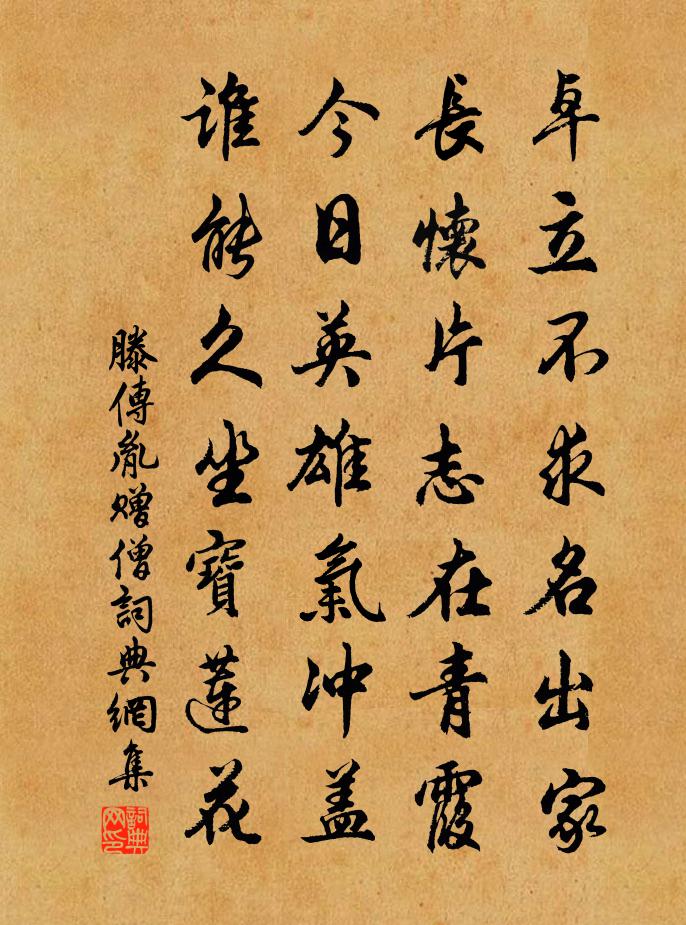 卓立不求名出家
長懷片志在青霞
今日英雄氣冲盖
誰能久坐寶蓮花
滕傳胤贈僧詞典網集
詞典网印